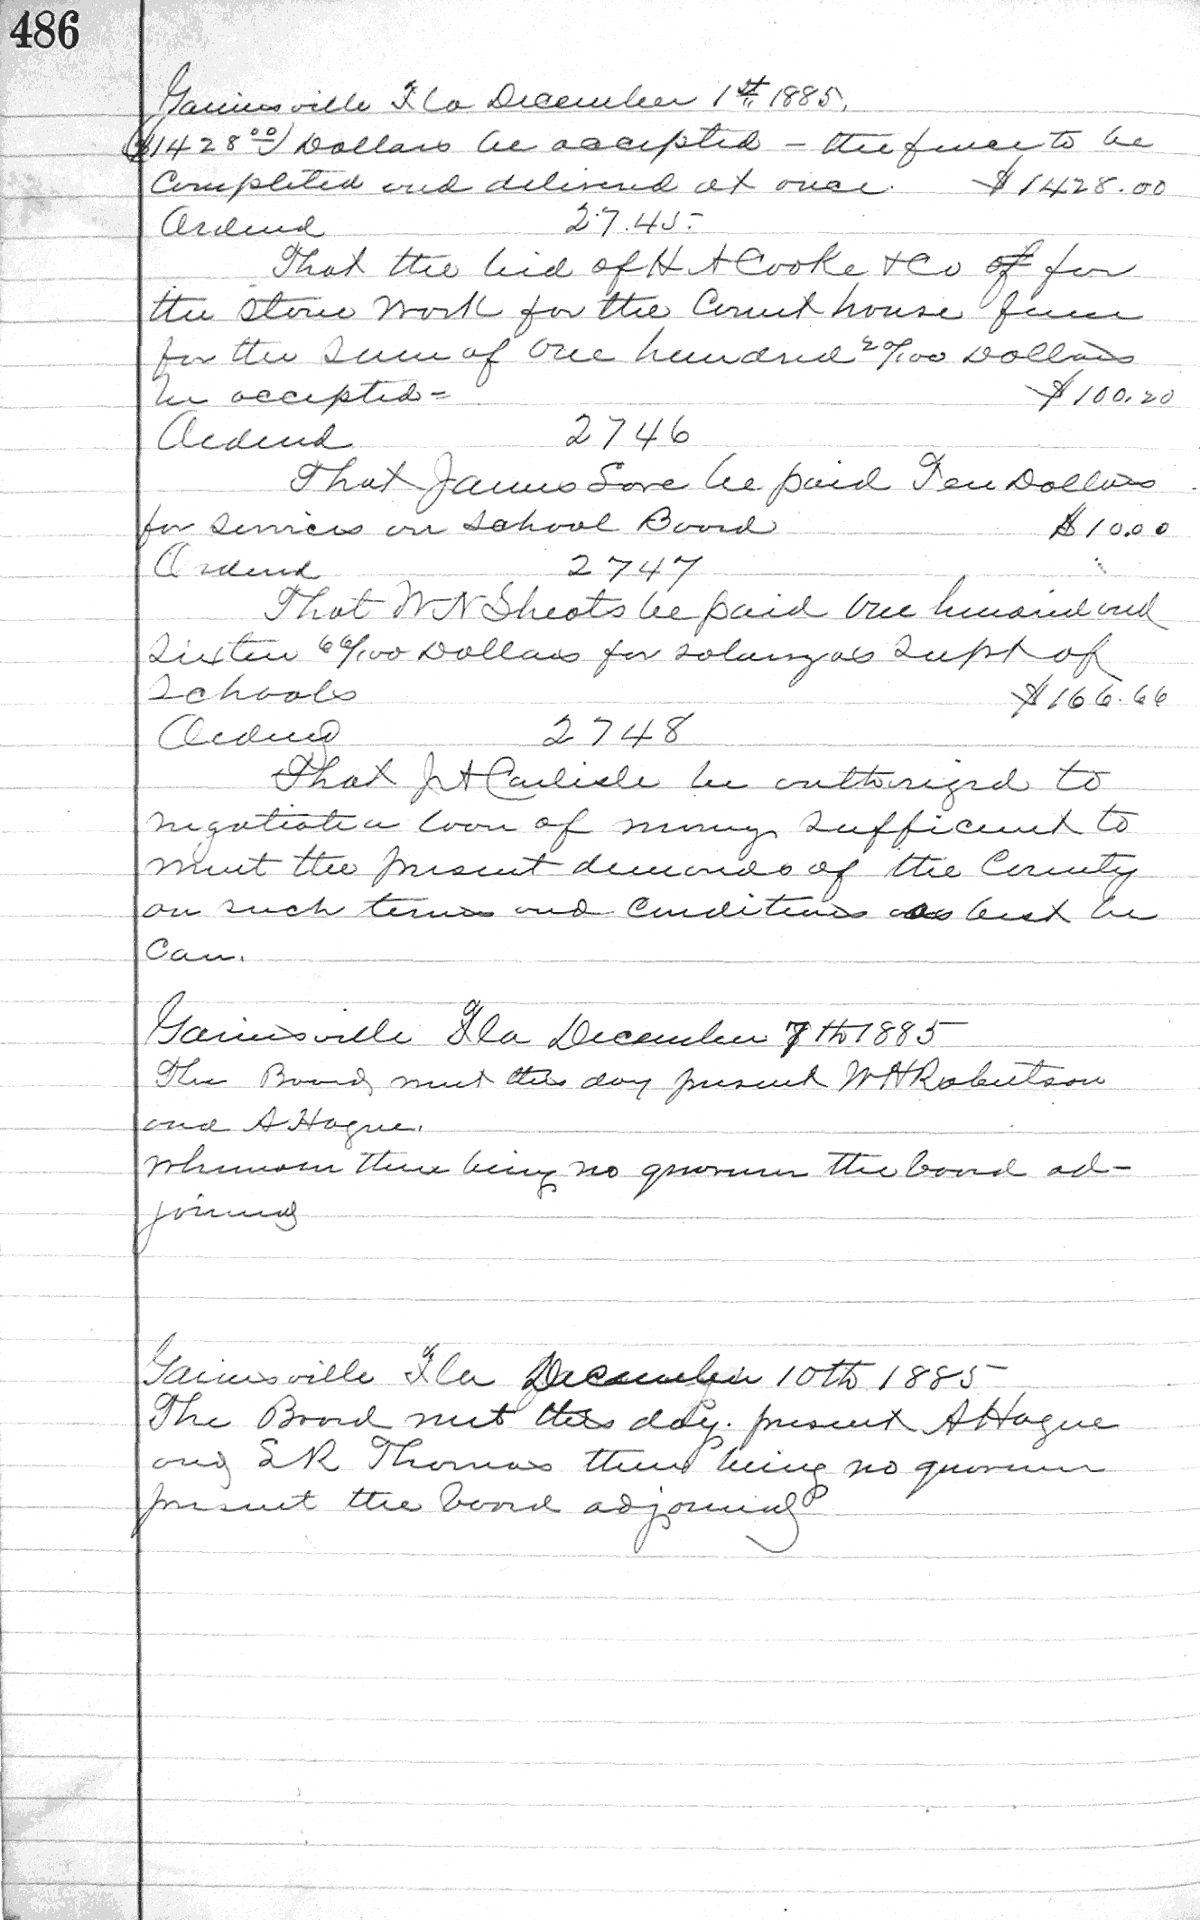 486
Gainesville Fla December 1st, 1885.
($1428 00) Dollars be accepted - the fence to be
Completed and delivered at once. $1428.00
Ordered 2745-
That the bid of H A Cooke & Co of for
the Stone Work for the Court house fence
for the Sum of One hundred 20/100 Dollars
be accepted = $100.20
Ordered 2746
That James Sore be paid Ten Dollars
for Services on School Board $10.00
Ordered 2747
That W N Sheats be paid One hundred and
Sixten 66/100 Dollars for salary as Supt of
Schools $166.66
Ordered 2748
That J A Carlisle be authorized to
negotiate a loan of money sufficient to
meet the present demands of the County
on such terms and Conditions as best he
can.
Gainesville Fla December 7th 1885
The Board met this day present W H Robertson
and A Hague.
Whereon there being no quorum the board ad-
journed
Gainesville Fla December 10th 1885
The Board met this day. present A Hague
and S R Thomas there being no quorum
present the board adjourned